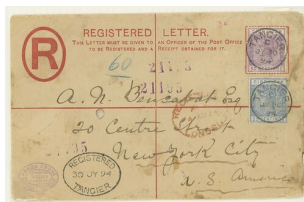 REGISTERED LETTER.
THIS LETTER MUST BE GIVEN TO AN OFFICER OF THE POST OFFICE
TO BE REGISTERED AND A RECEIPT OBTAINED FOR IT.
R
60
21195
A. N. Esq
20 Centre Street
New York City
U.S. America
REGISTERED
30 JY 94
TANGIER
TANGIER
LONDON